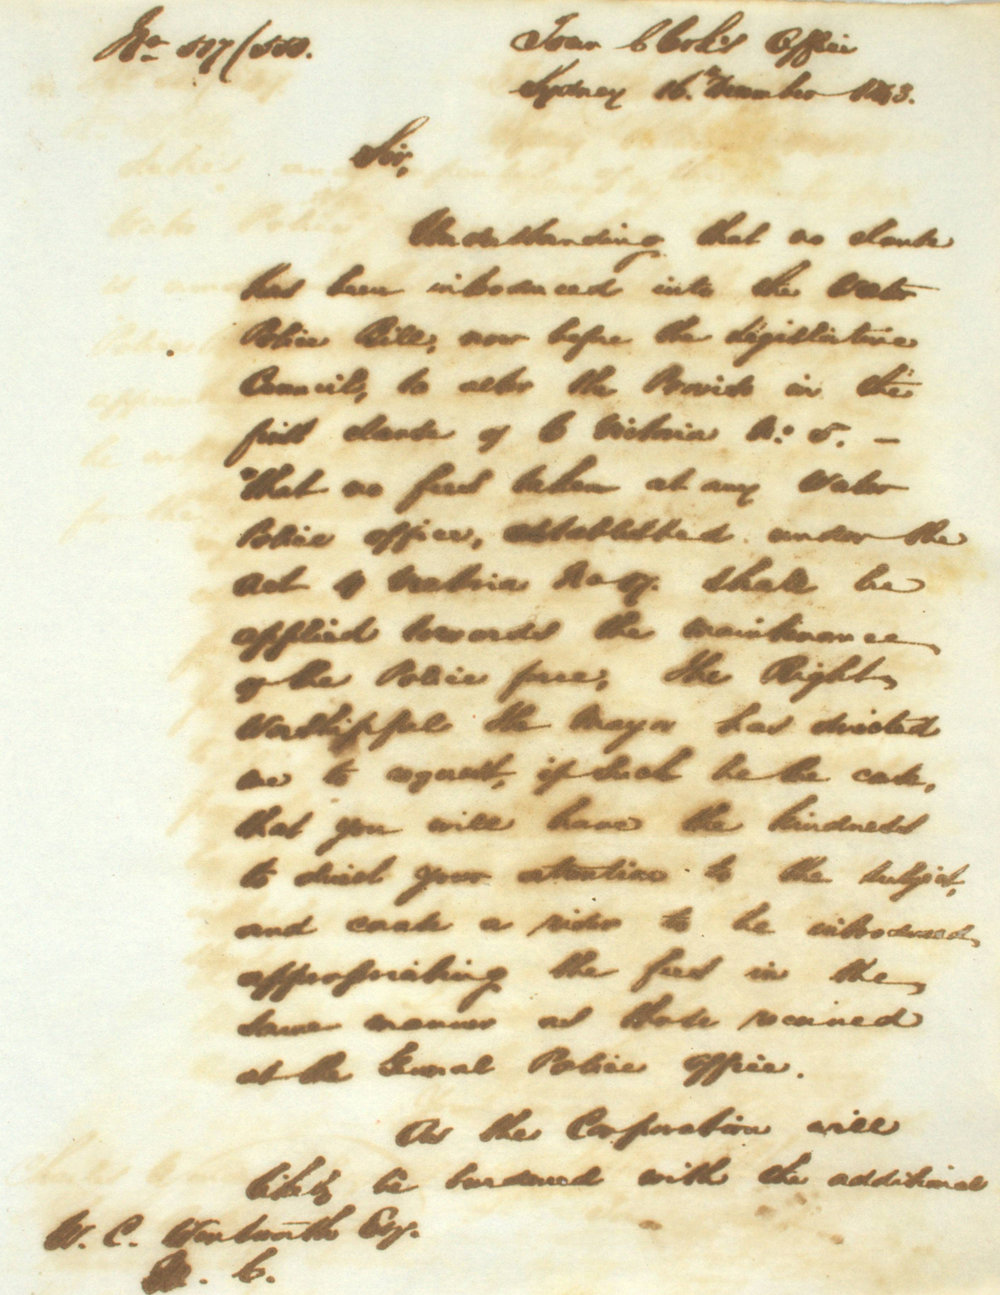 No 517/550.
Town Clerk's Office
Sydney 16th December 1843.
Sir,
Understanding that no clause
has been introduced into the Water
Police Bill, now before the Legislative
Council, to alter the Proviso in the
first clause of 6 Victoria No 5. —
"That no fees taken at any Water
Police office, established under the
act of Victoria shall be
applied towards the maintenance
of the Police force; the Right
Worshipful the Mayor has directed
me to request, if such be the case,
that you will have the kindness
to direct your attention to the subject,
and cause a rider to be introduced,
appropriating the fees in the
same manner as those received
at the General Police Office.
As the Corporation will
likely be burdened with the additional
W. C. Wentworth Esq.
M. C.